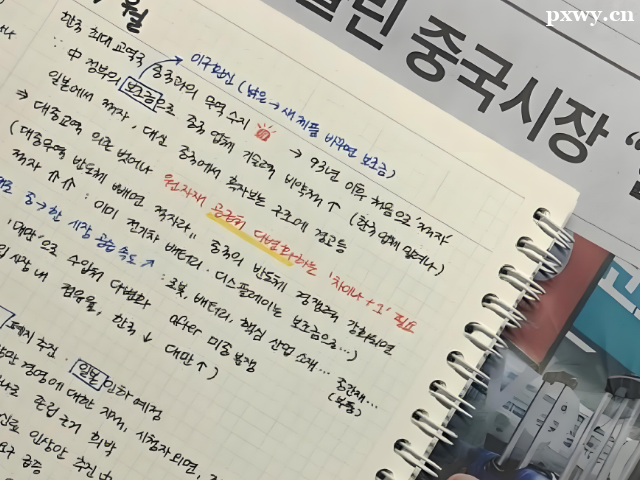 pxwy.cn
중국시장 "
월
이구환신 (낡은 → 새 제품 바꾸면 보조금)
한국 최대 교역국 중국과의 무역 수지 → 93년 이후 처음으로 '적자'
∵ 中 정부의 보조금으로 중국 업체 기술력 비약적 ↑ (한국 업체 밀려나)
일본에서 적자, 대신 중국에서 흑자보는 구조에 경고등
⇒ 대중교역 의존 벗어나 원자재 공급처 다변화하는 '차이나 + 1' 필요
(대중무역 반도체 빼면 적자라, 중국의 반도체 경쟁력 강화되면
적자 ↑↑ : 이미 전기차 배터리·디스플레이는 보조금으로...)
중→한 시장 공습 속도 ↗ : 로봇, 배터리, 핵심 산업 소재... 중간재...
(부품)
'대만'으로 수입처 다변화 after 미중 분쟁
시장 내 점유율, 한국 ↓ 대만 ↑)
폐지 추진 · 일본 인하 예정
경영에 대한 지적, 시청자 외면,
존립 근거 희박
인상안 추진
요구 급증